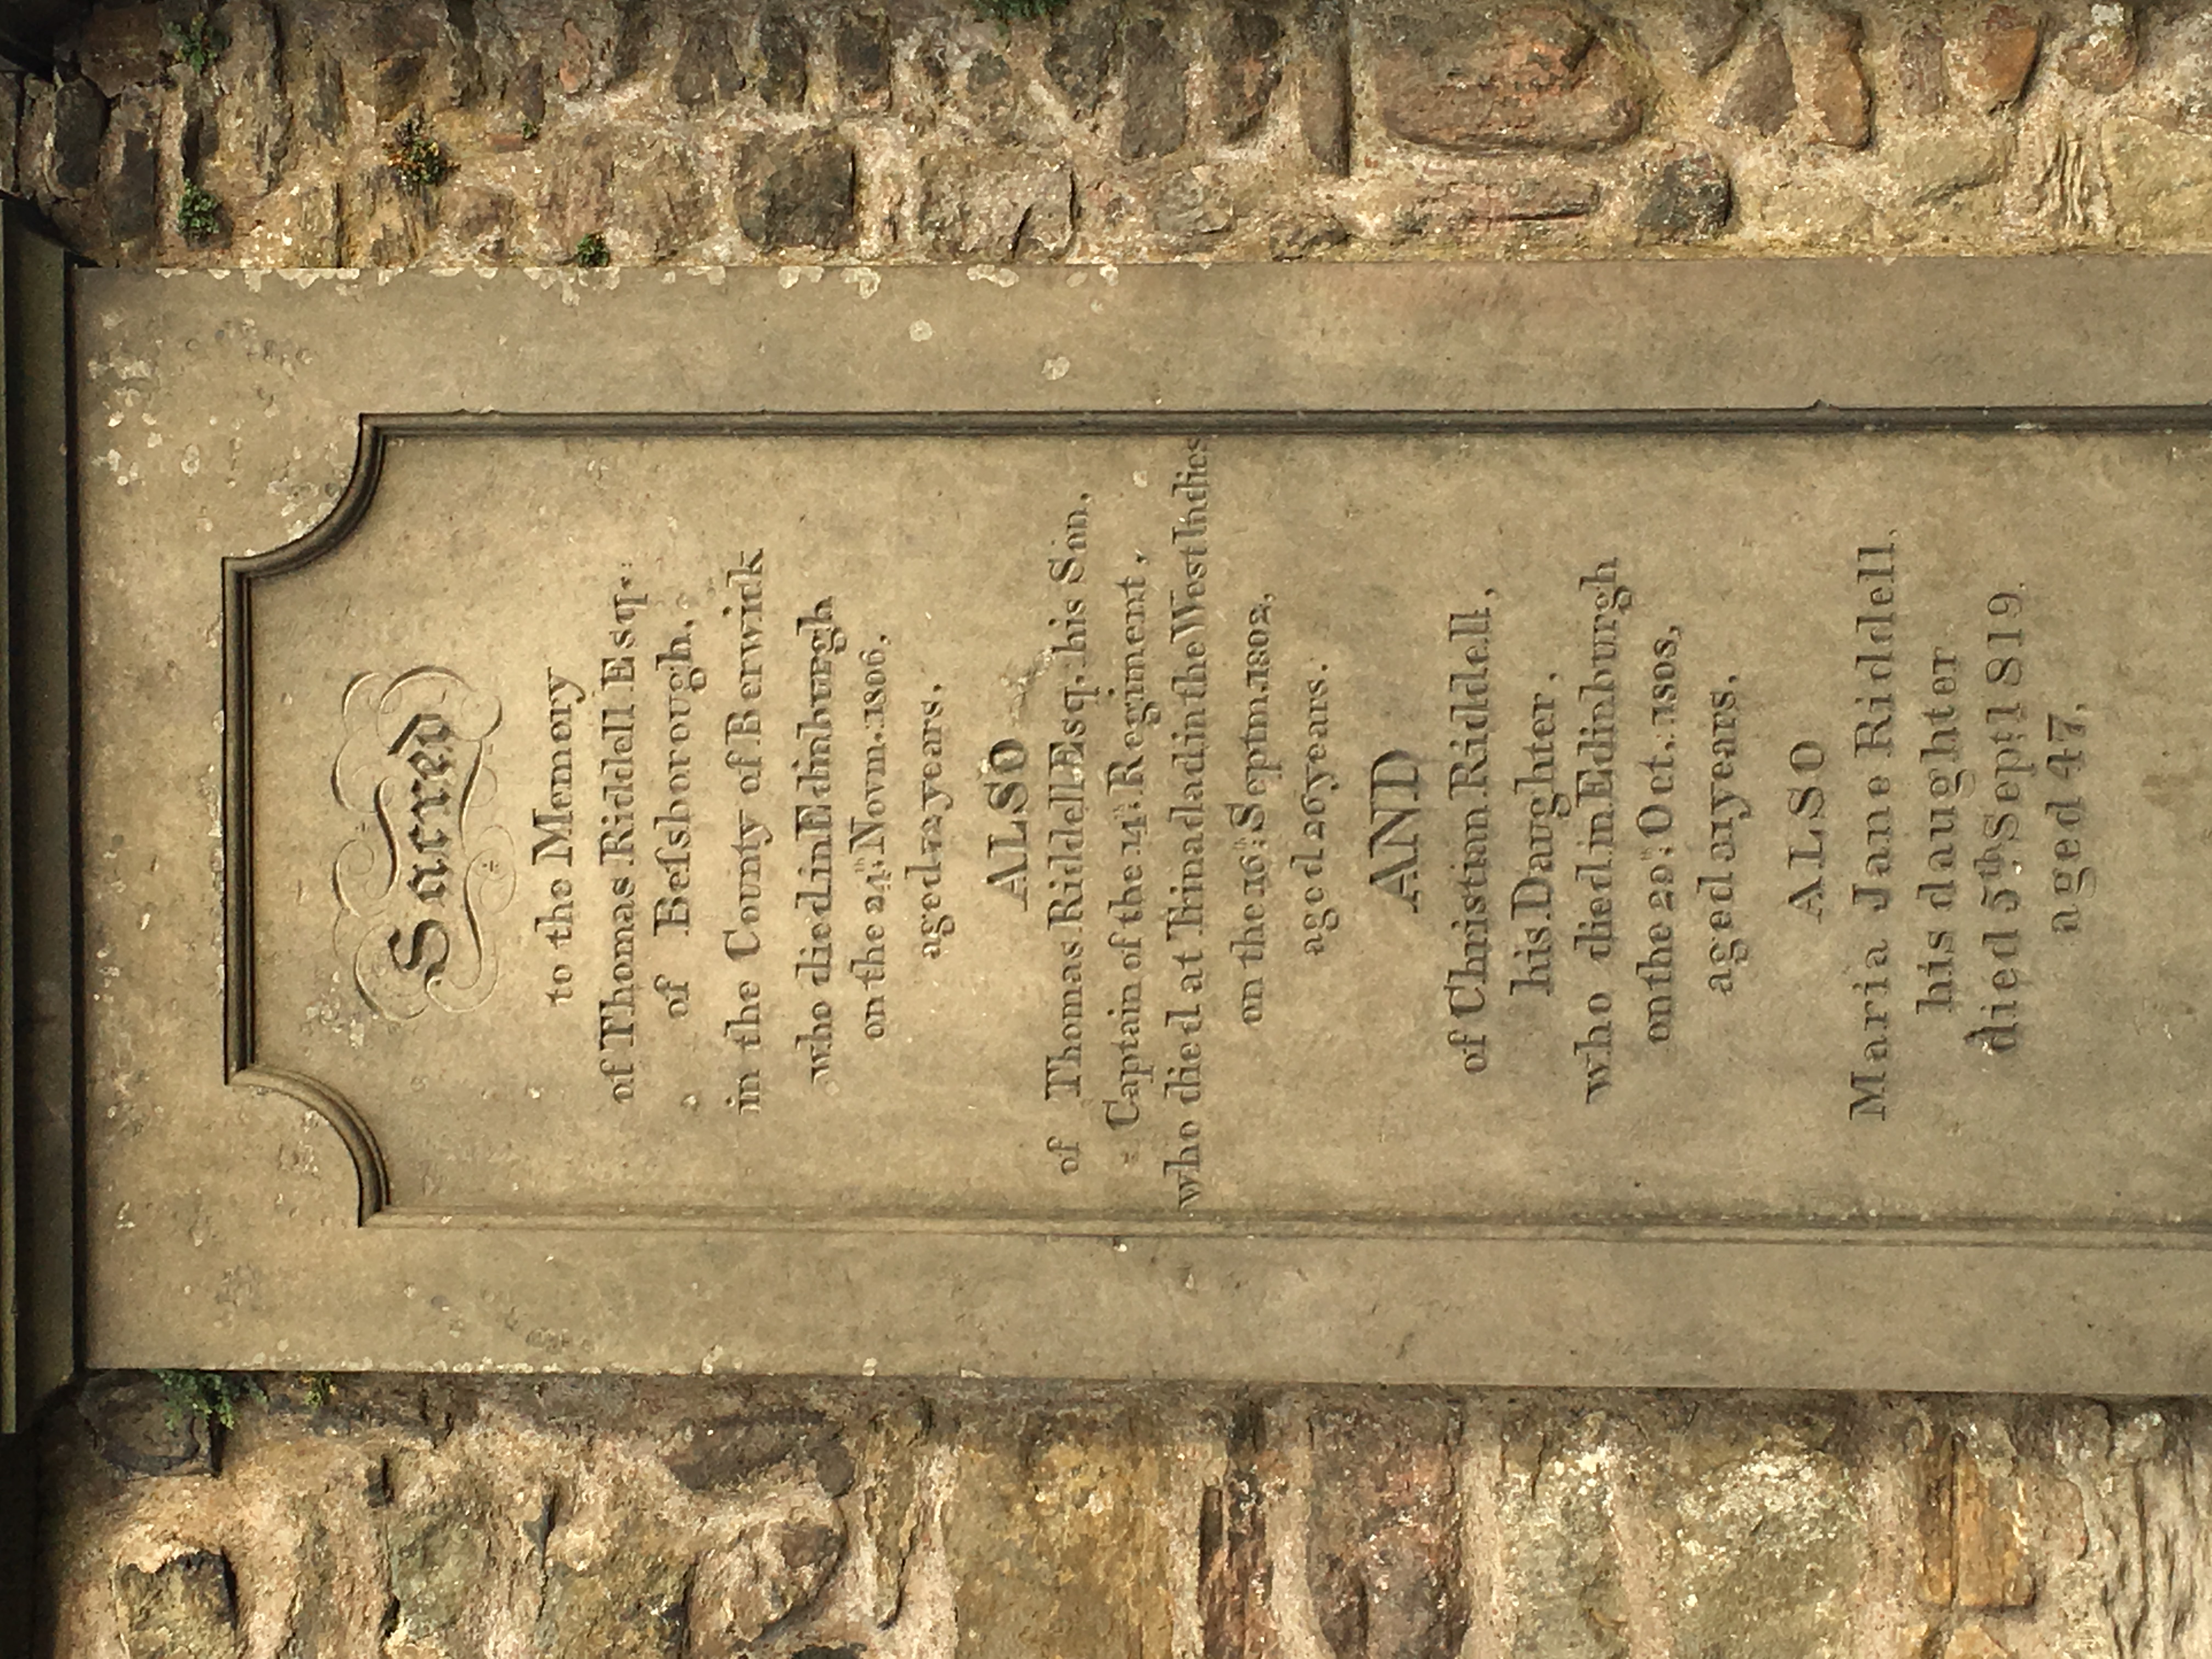 Sacred
to the Memory
of Thomas Riddell Esqr:
of Beſsborough,
in the County of Berwick
who died in Edinburgh
on the 24th. Novm. 1806,
aged 72 years,
ALSO
of Thomas Riddell Esq. his Son,
Captain of the 14th. Regiment,
who died at Trinadad in the West Indies
on the 16th. Septm. 1802,
aged 26 years.
AND
of Christian Riddell,
his Daughter,
who died in Edinburgh
on the 29th. Oct. 1808,
aged years,
ALSO
Maria Jane Riddell,
his daughter
died 5th. Sept. 1819.
aged 47,